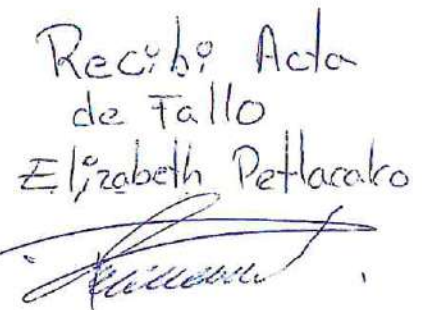 Recibi Acta
de Fallo
Elizabeth Petlacalco